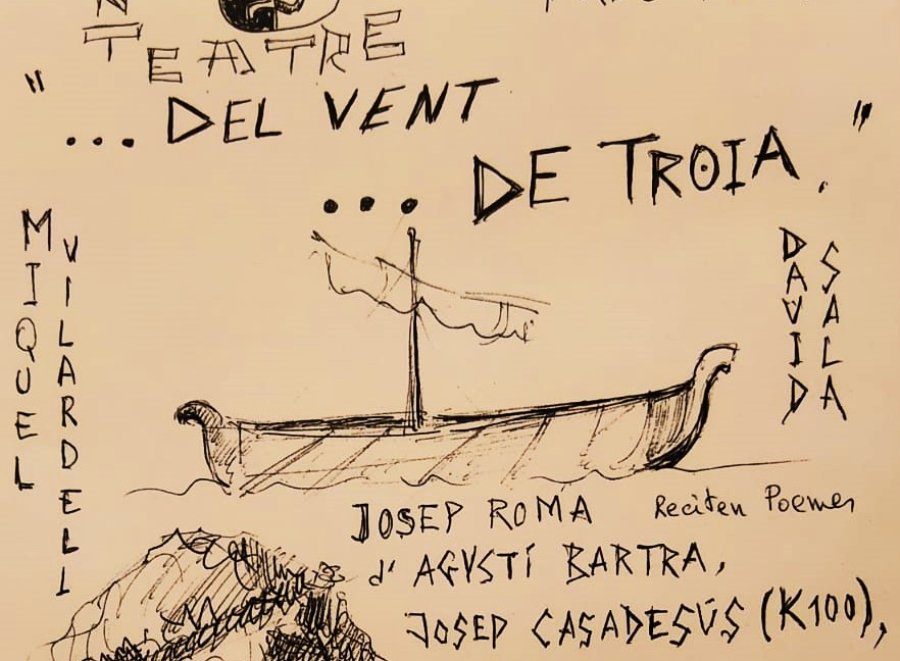 TEATRE
"
...DEL VENT
... DE TROIA."
MIQUEL
VILARDELL
DAVID
SALA
JOSEP ROMA Reciten Poemes
d'AGUSTÍ BARTRA,
JOSEP CASADESÚS (K100),